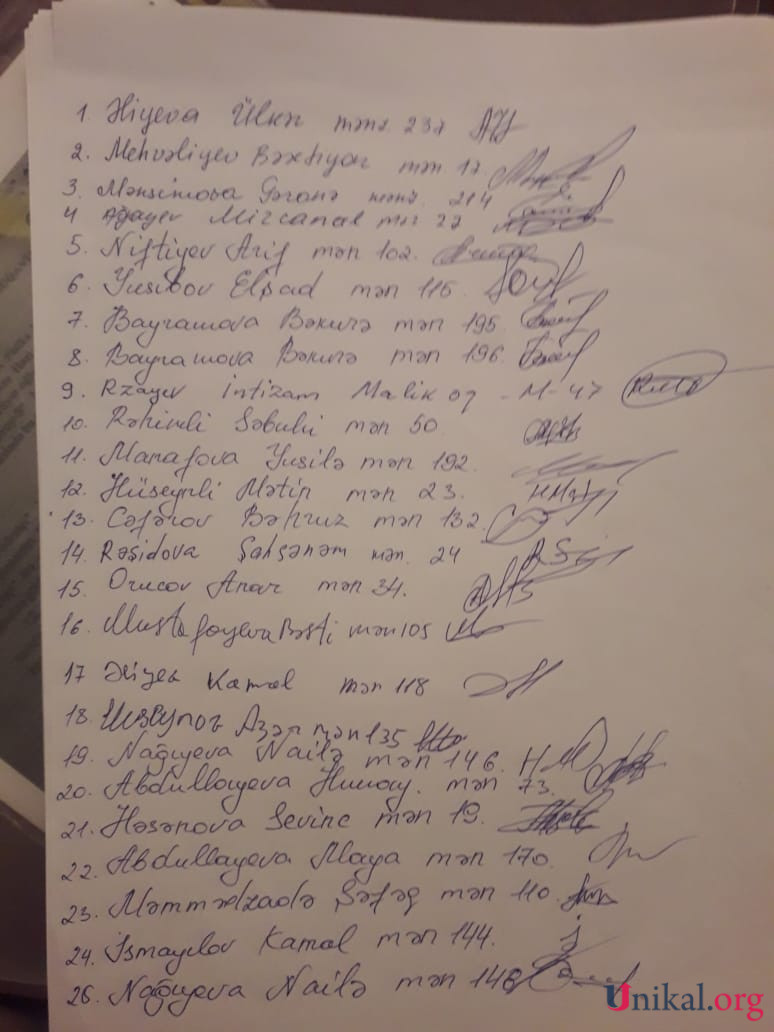 1. Əliyeva Ülkər mənz. 237
2. Mehvəliyev Bəxtiyar mən 17
3. Mənsimova Təranə mənz. 214
4 Ağayev Mircamal mnz 27
5. Niftiyev Arif mən 102.
6. Yusibov Elşad mən 115.
7. Bayramova Bəkurə mən 195
8. Bayramova Bəkurə mən 196
9. Rzayev İntizam Malik oq - M-47
10. Rəhimli Səbuhi mən 50.
11. Manafova Yusilə mən 192.
12. Hüseynli Mətin mən 23.
13. Cəfərov Bəhruz mən 132.
14. Rəşidova Şahsənəm mən. 24
15. Orucov Anar mən 34.
16. Mustafayeva Bəsti mən 105
17 Əliyev Kamal mən 118
18. Huseynov Azər mən 135
19. Nağıyeva Nailə mən 146.
20. Abdullayeva Humay. mən 73.
21. Həsənova Sevinc mən 19.
22. Abdullayeva Maya mən 170.
23. Məmmədzadə Şəfəq mən 110.
24. İsmayılov Kamal mən 144.
26. Nağıyeva Nailə mən 146
Unikal.org